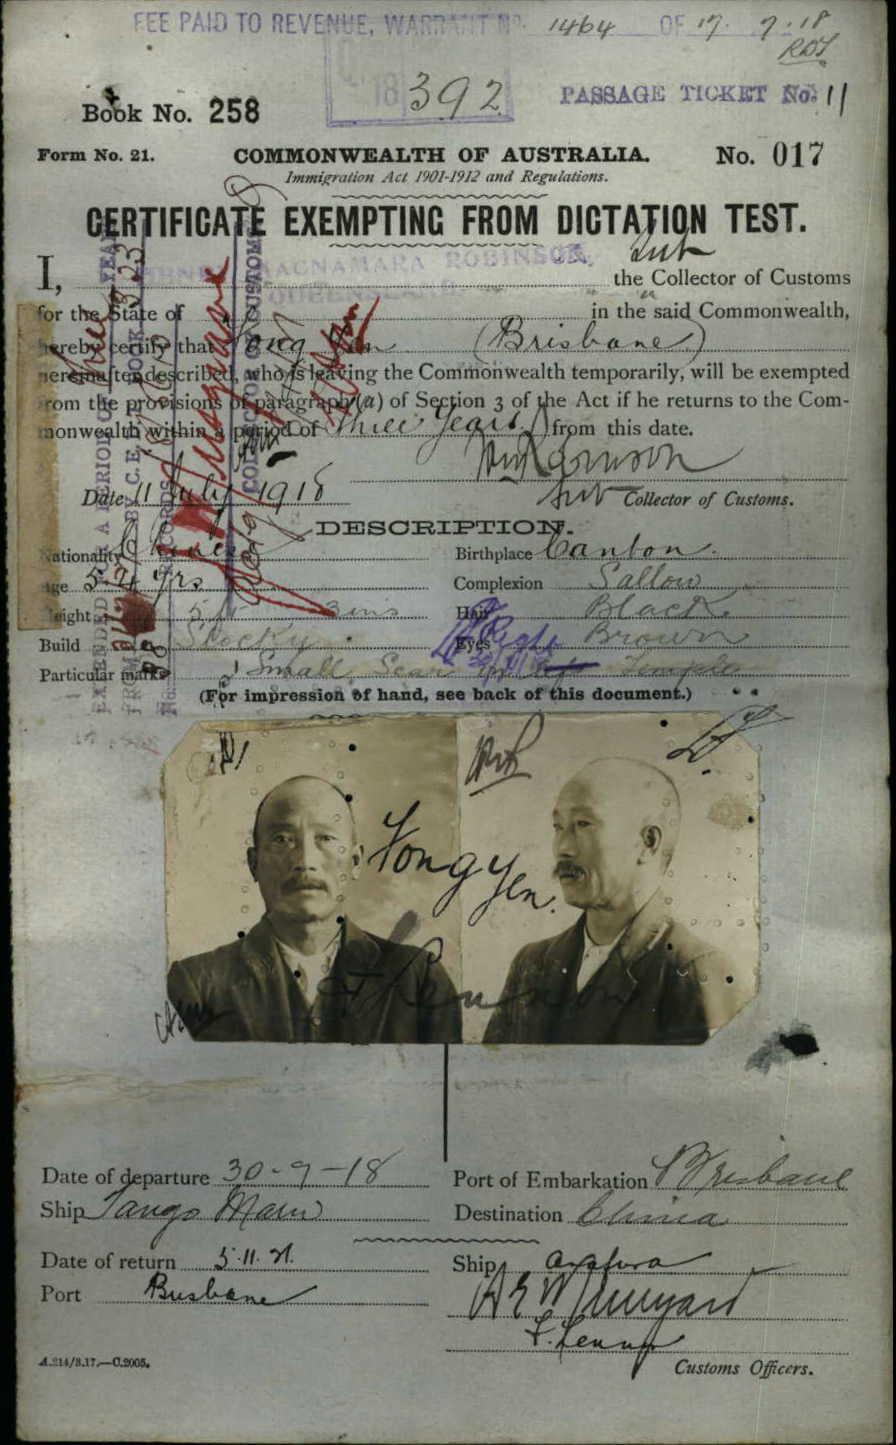 FEE PAID TO REVENUE, WARRANT No. 1464 OF 17. 7. 18
392
PASSAGE TICKET No. 11
Book No. 258
Form No. 21.
COMMONWEALTH OF AUSTRALIA.
No. 017
Immigration Act 1901-1912 and Regulations.
CERTIFICATE EXEMPTING FROM DICTATION TEST.
Sub
I, MACNAMARA ROBINSON, the Collector of Customs
for the State of QUEENSLAND in the said Commonwealth,
hereby certify that Yen (Brisbane)
hereinafter described, who is leaving the Commonwealth temporarily, will be exempted
from the provisions of paragraph (a) of Section 3 of the Act if he returns to the Com-
monwealth within a period of Three Years from this date.
Date 11 July 1918
Sub Collector of Customs.
DESCRIPTION.
Nationality Chinese
Birthplace Canton.
Age 52 yrs
Complexion Sallow
Height 5ft 3ins
Hair Black
Build Stocky.
Eyes Brown
Right
Particular marks Small Scar on Temple
(For impression of hand, see back of this document.)
Yen.
Date of departure 30-9-18
Port of Embarkation Brisbane
Ship Tango Maru
Destination China
Date of return 5.11.21.
Ship Arafura
Port Brisbane
A.214/3.17.—C.2005.
Customs Officers.